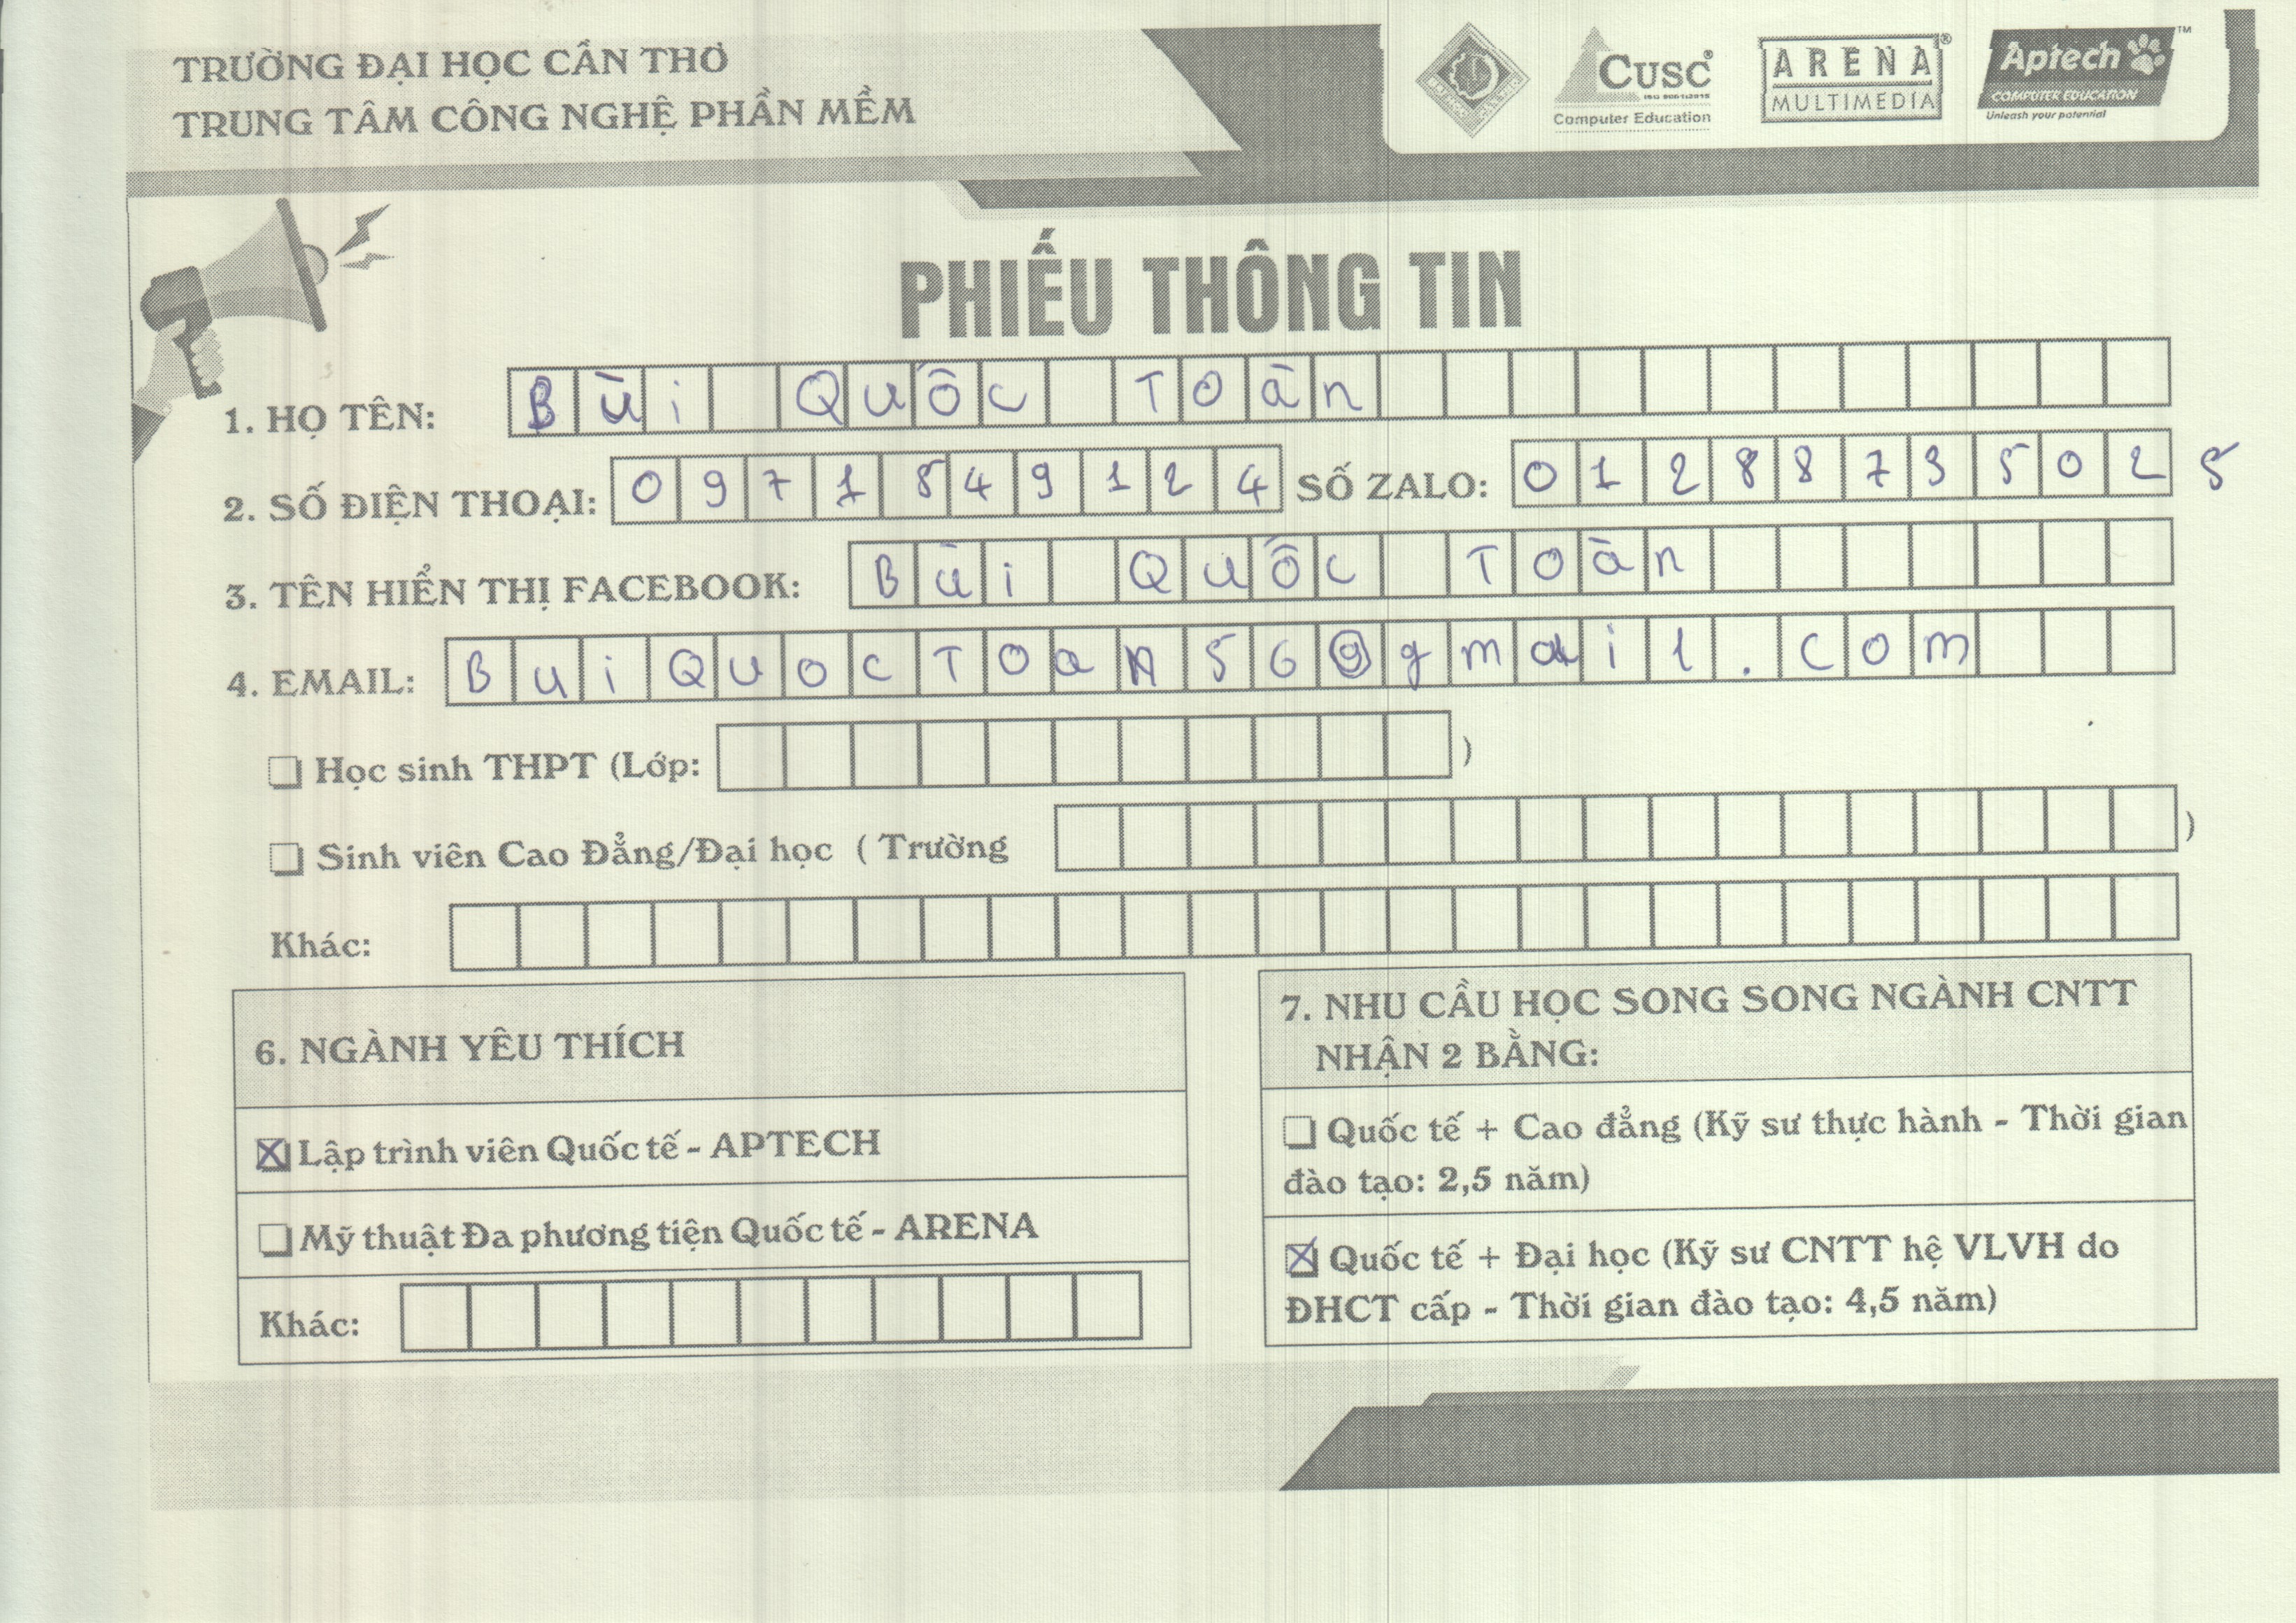 TRƯỜNG ĐẠI HỌC CẦN THƠ
TRUNG TÂM CÔNG NGHỆ PHẦN MỀM
CUSC®
Computer Education
ARENA®
MULTIMEDIA
Aptech™
COMPUTER EDUCATION
Unleash your potential
PHIẾU THÔNG TIN
1. HỌ TÊN: Bùi Quốc Toàn
2. SỐ ĐIỆN THOẠI: 0971549124 SỐ ZALO: 01288735025
3. TÊN HIỂN THỊ FACEBOOK: Bùi Quốc Toàn
4. EMAIL: BuiQuocToan56@gmail.com
Học sinh THPT (Lớp: )
Sinh viên Cao Đẳng/Đại học ( Trường )
Khác:
6. NGÀNH YÊU THÍCH
Lập trình viên Quốc tế - APTECH
Mỹ thuật Đa phương tiện Quốc tế - ARENA
Khác:
7. NHU CẦU HỌC SONG SONG NGÀNH CNTT
NHẬN 2 BẰNG:
Quốc tế + Cao đẳng (Kỹ sư thực hành - Thời gian
đào tạo: 2,5 năm)
Quốc tế + Đại học (Kỹ sư CNTT hệ VLVH do
ĐHCT cấp - Thời gian đào tạo: 4,5 năm)